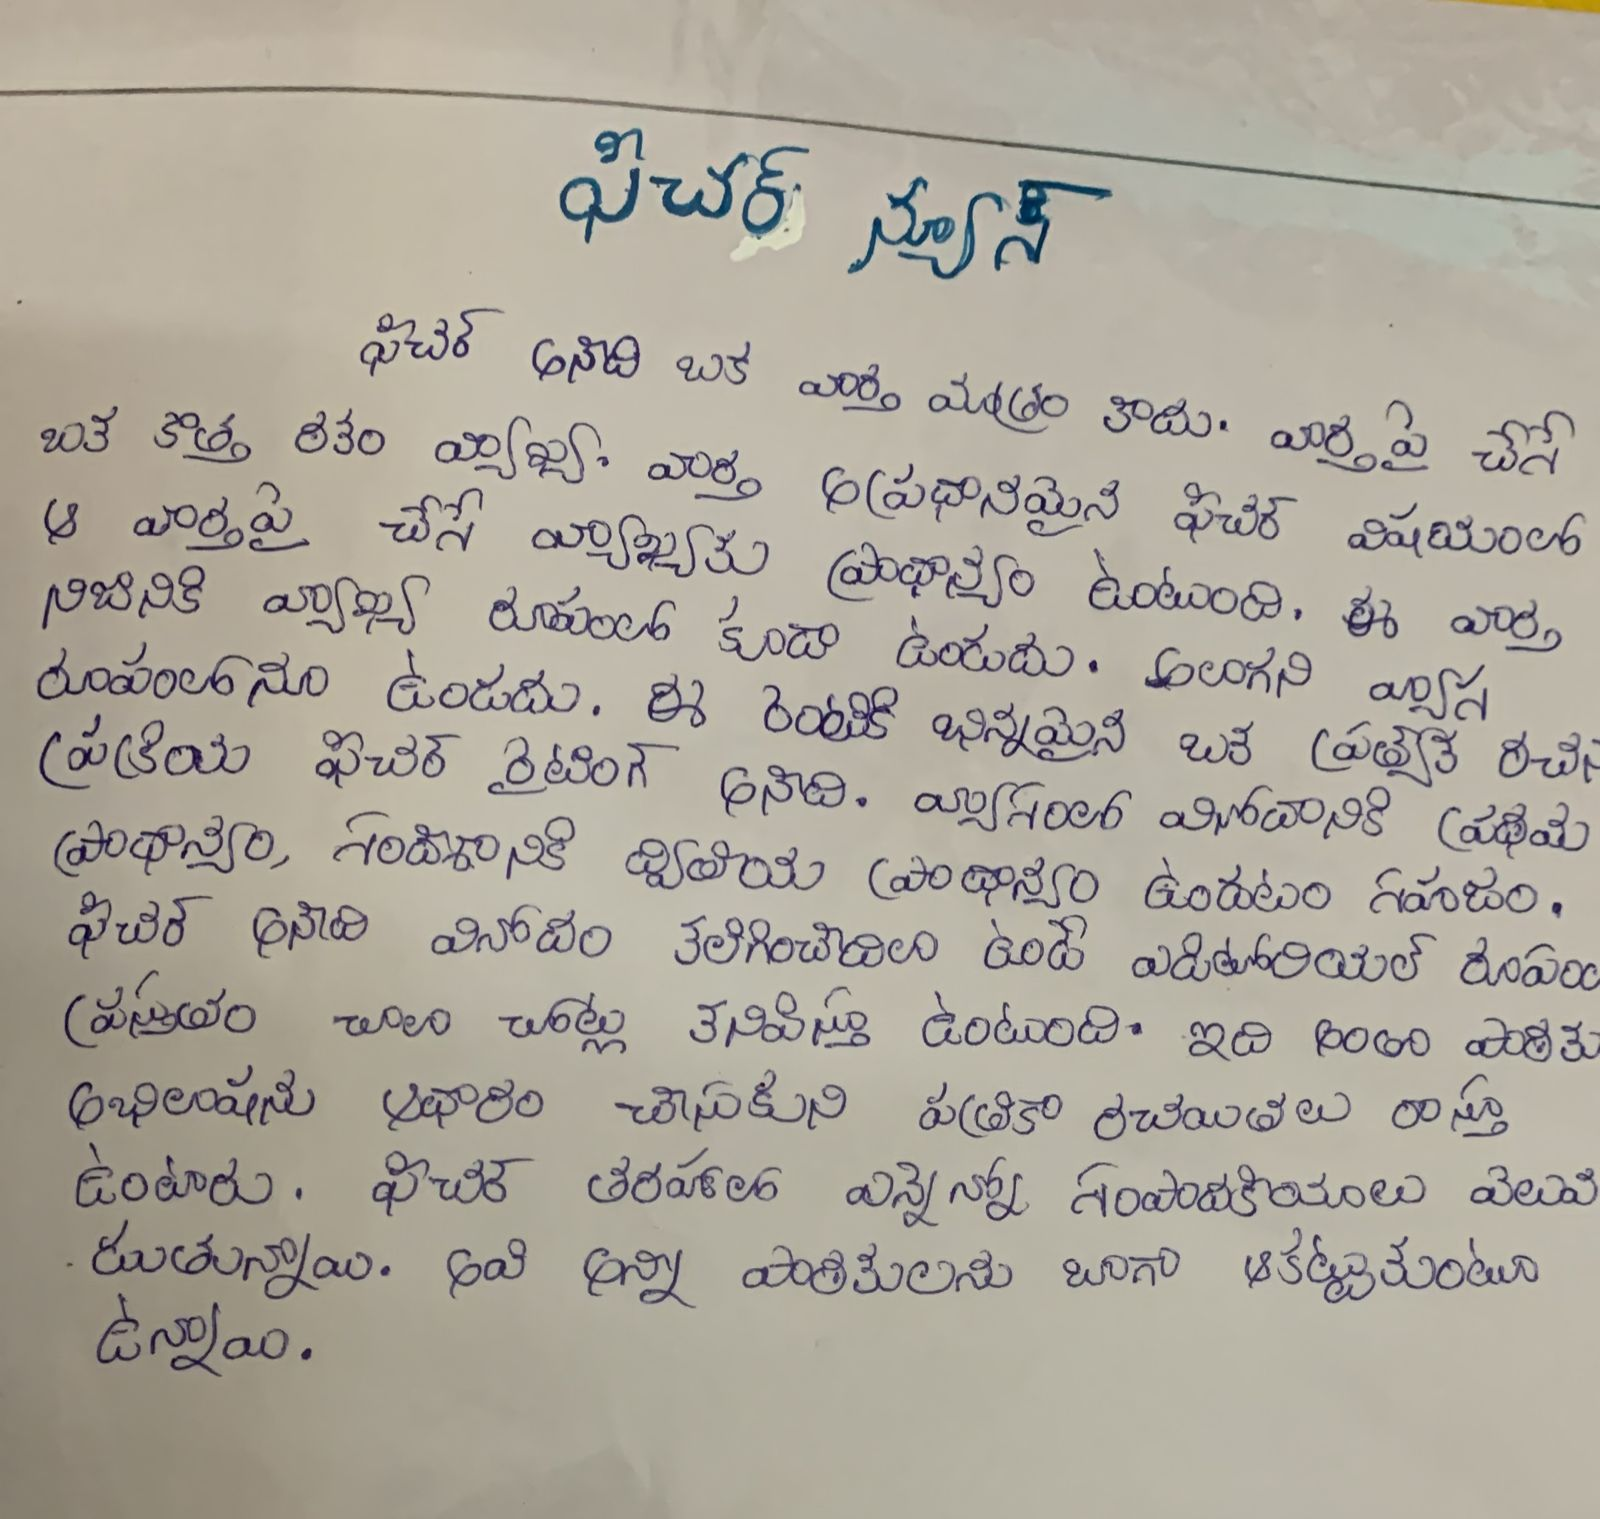 ఫీచర్ న్యూస్
ఫీచర్ అనేది ఒక వార్త మాత్రం కాదు. వార్తపై చేసే
ఒక కొత్త రకం వ్యాఖ్య. వార్త అప్రధానమైన ఫీచర్ విషయంలో
ఆ వార్తపై చేసే వ్యాఖ్యకు ప్రాధాన్యం ఉంటుంది. ఈ వార్త
నిజానికి వ్యాఖ్య రూపంలో కూడా ఉండదు. అలాగని వ్యాస
రూపంలోనూ ఉండదు. ఈ రెంటికీ భిన్నమైన ఒక ప్రత్యేక రచన
ప్రక్రియ ఫీచర్ రైటింగ్ అనేది. వ్యాసంలో వినోదానికి ప్రథమ
ప్రాధాన్యం, సందేశానికి ద్వితీయ ప్రాధాన్యం ఉండటం సహజం.
ఫీచర్ అనేది వినోదం కలిగించేదిలా ఉండే ఎడిటోరియల్ రూపం
ప్రస్తుతం చాలా చోట్ల కనిపిస్తూ ఉంటుంది. ఇది అంతా పాఠకు
అభిలాషను ఆధారం చేసుకుని పత్రికా రచయితలు రాస్తూ
ఉంటారు. ఫీచర్ తరహాలో ఎన్నెన్నో సంపాదకీయాలు వెలువ
డుతున్నాయి. అవి అన్ని పాఠకులను బాగా ఆకట్టుకుంటూ
ఉన్నాయి.